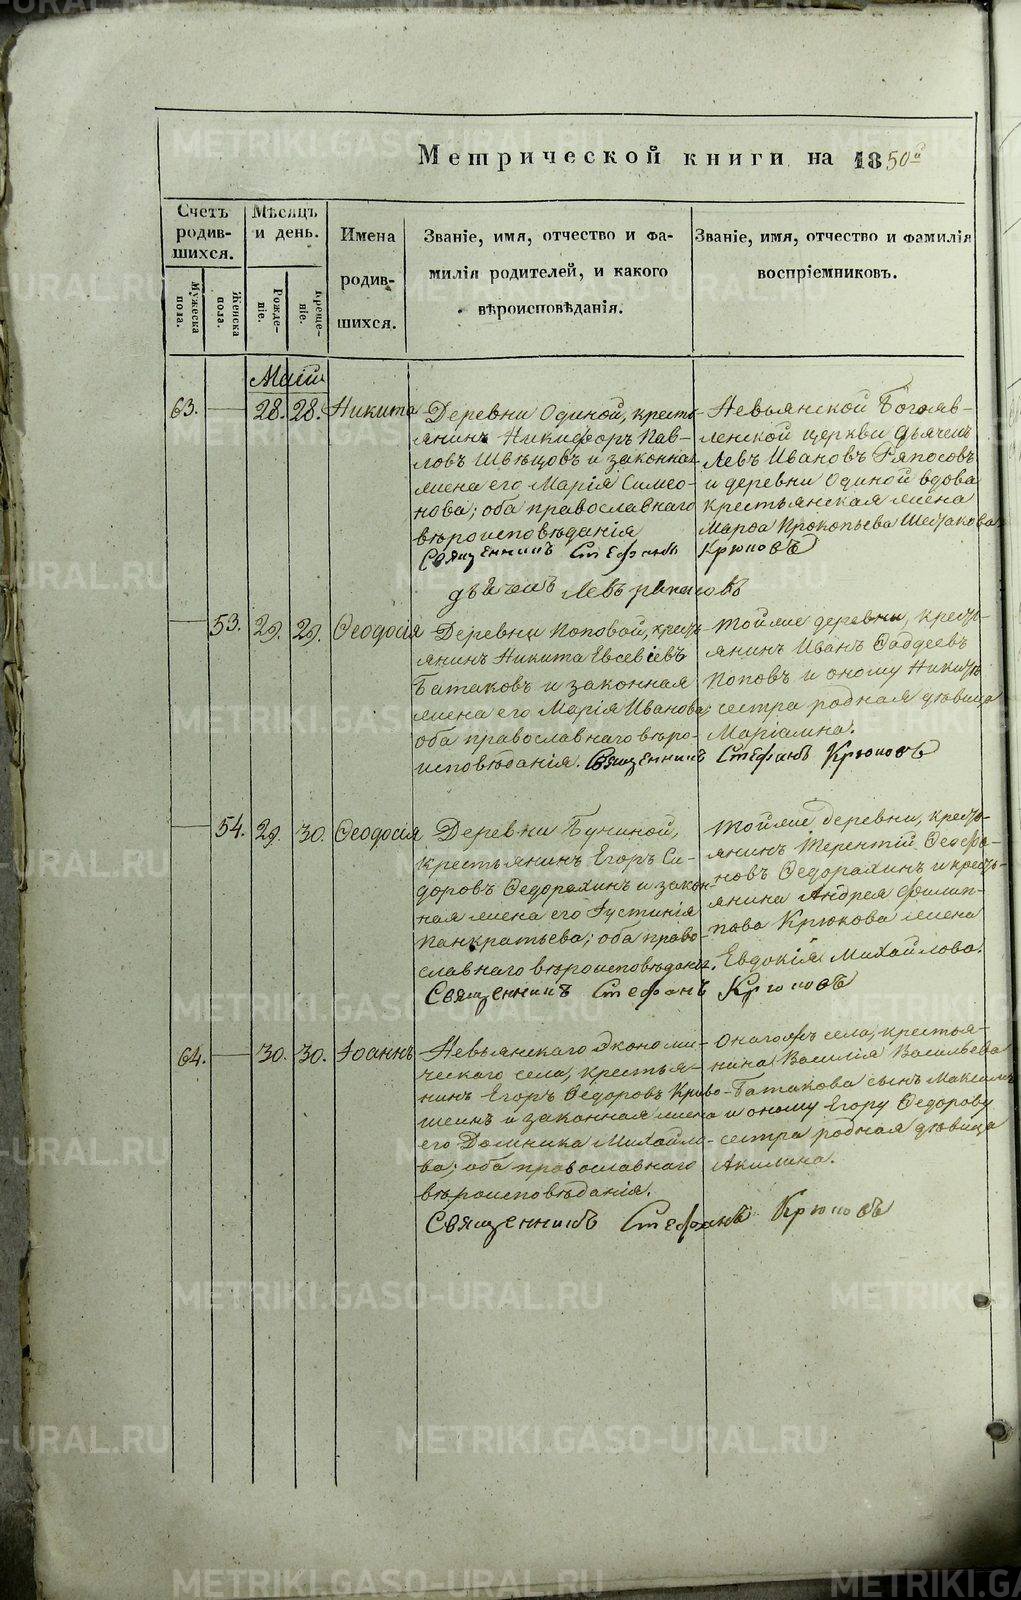 METRIKI.GASO-URAL.RU
Метрической книги на 1850й
Счетъ родив-шихся.
Мужеска пола.
Женска пола.
Мѣсяцъ и день.
Рожде-ніе.
Креще-ніе.
Имена родив-шихся.
Званіе, имя, отчество и фа-
милія родителей, и какого
вѣроисповѣданія.
Званіе, имя, отчество и фамилія
воспріемниковъ.
Маій
63. 28. 28. Никита
Деревни Одиной, кресть-
янинъ Никифоръ Пав-
ловъ Швецовъ и законная
жена его Марія Симео-
нова; оба православнаго
вѣроисповѣданія
Невьянской Богояв-
ленской церкви дьячекъ
Левъ Ивановъ Ряпосовъ
и деревни Одиной вдова
крестьянская жена
Марѳа Прокопьева
Священникъ Стефанъ Крюковъ
дьячекъ Левъ Ряпосовъ
53. 29. 29. Ѳеодосія
Деревни Поповой, кресть-
янинъ Никита Евсевіевъ
Батаковъ и законная
жена его Марія Иванова;
оба православнаго вѣро-
исповѣданія.
Тойже деревни, кресть-
янинъ Иванъ Ѳаддеевъ
Поповъ и оному Никитѣ
сестра родная дѣвица
Маріамна.
Священникъ Стефанъ Крюковъ
54. 29. 30. Ѳеодосія
Деревни Бучиной,
крестьянинъ Егоръ Си-
доровъ Ѳедорахинъ и закон-
ная жена его Іустинія
Панкратьева; оба право-
славнаго вѣроисповѣданія.
Тойже деревни, кресть-
янинъ Терентій
Ѳедорахинъ и кресть-
янина Андрея Филип-
пова Крюкова жена
Евдокія Михайлова.
Священникъ Стефанъ Крюковъ
64. 30. 30. Іоаннъ
Невьянскаго Экономи-
ческаго села, крестья-
нинъ Егоръ Ѳедоровъ Криво-
шеинъ и законная жена
его Домника Михайло-
ва; оба православнаго
вѣроисповѣданія.
Онагожъ села, крестья-
нина Василія Васильева
Батакова сынъ Максимъ
и оному Егору Ѳедорову
сестра родная дѣвица
Акилина.
Священникъ Стефанъ Крюковъ